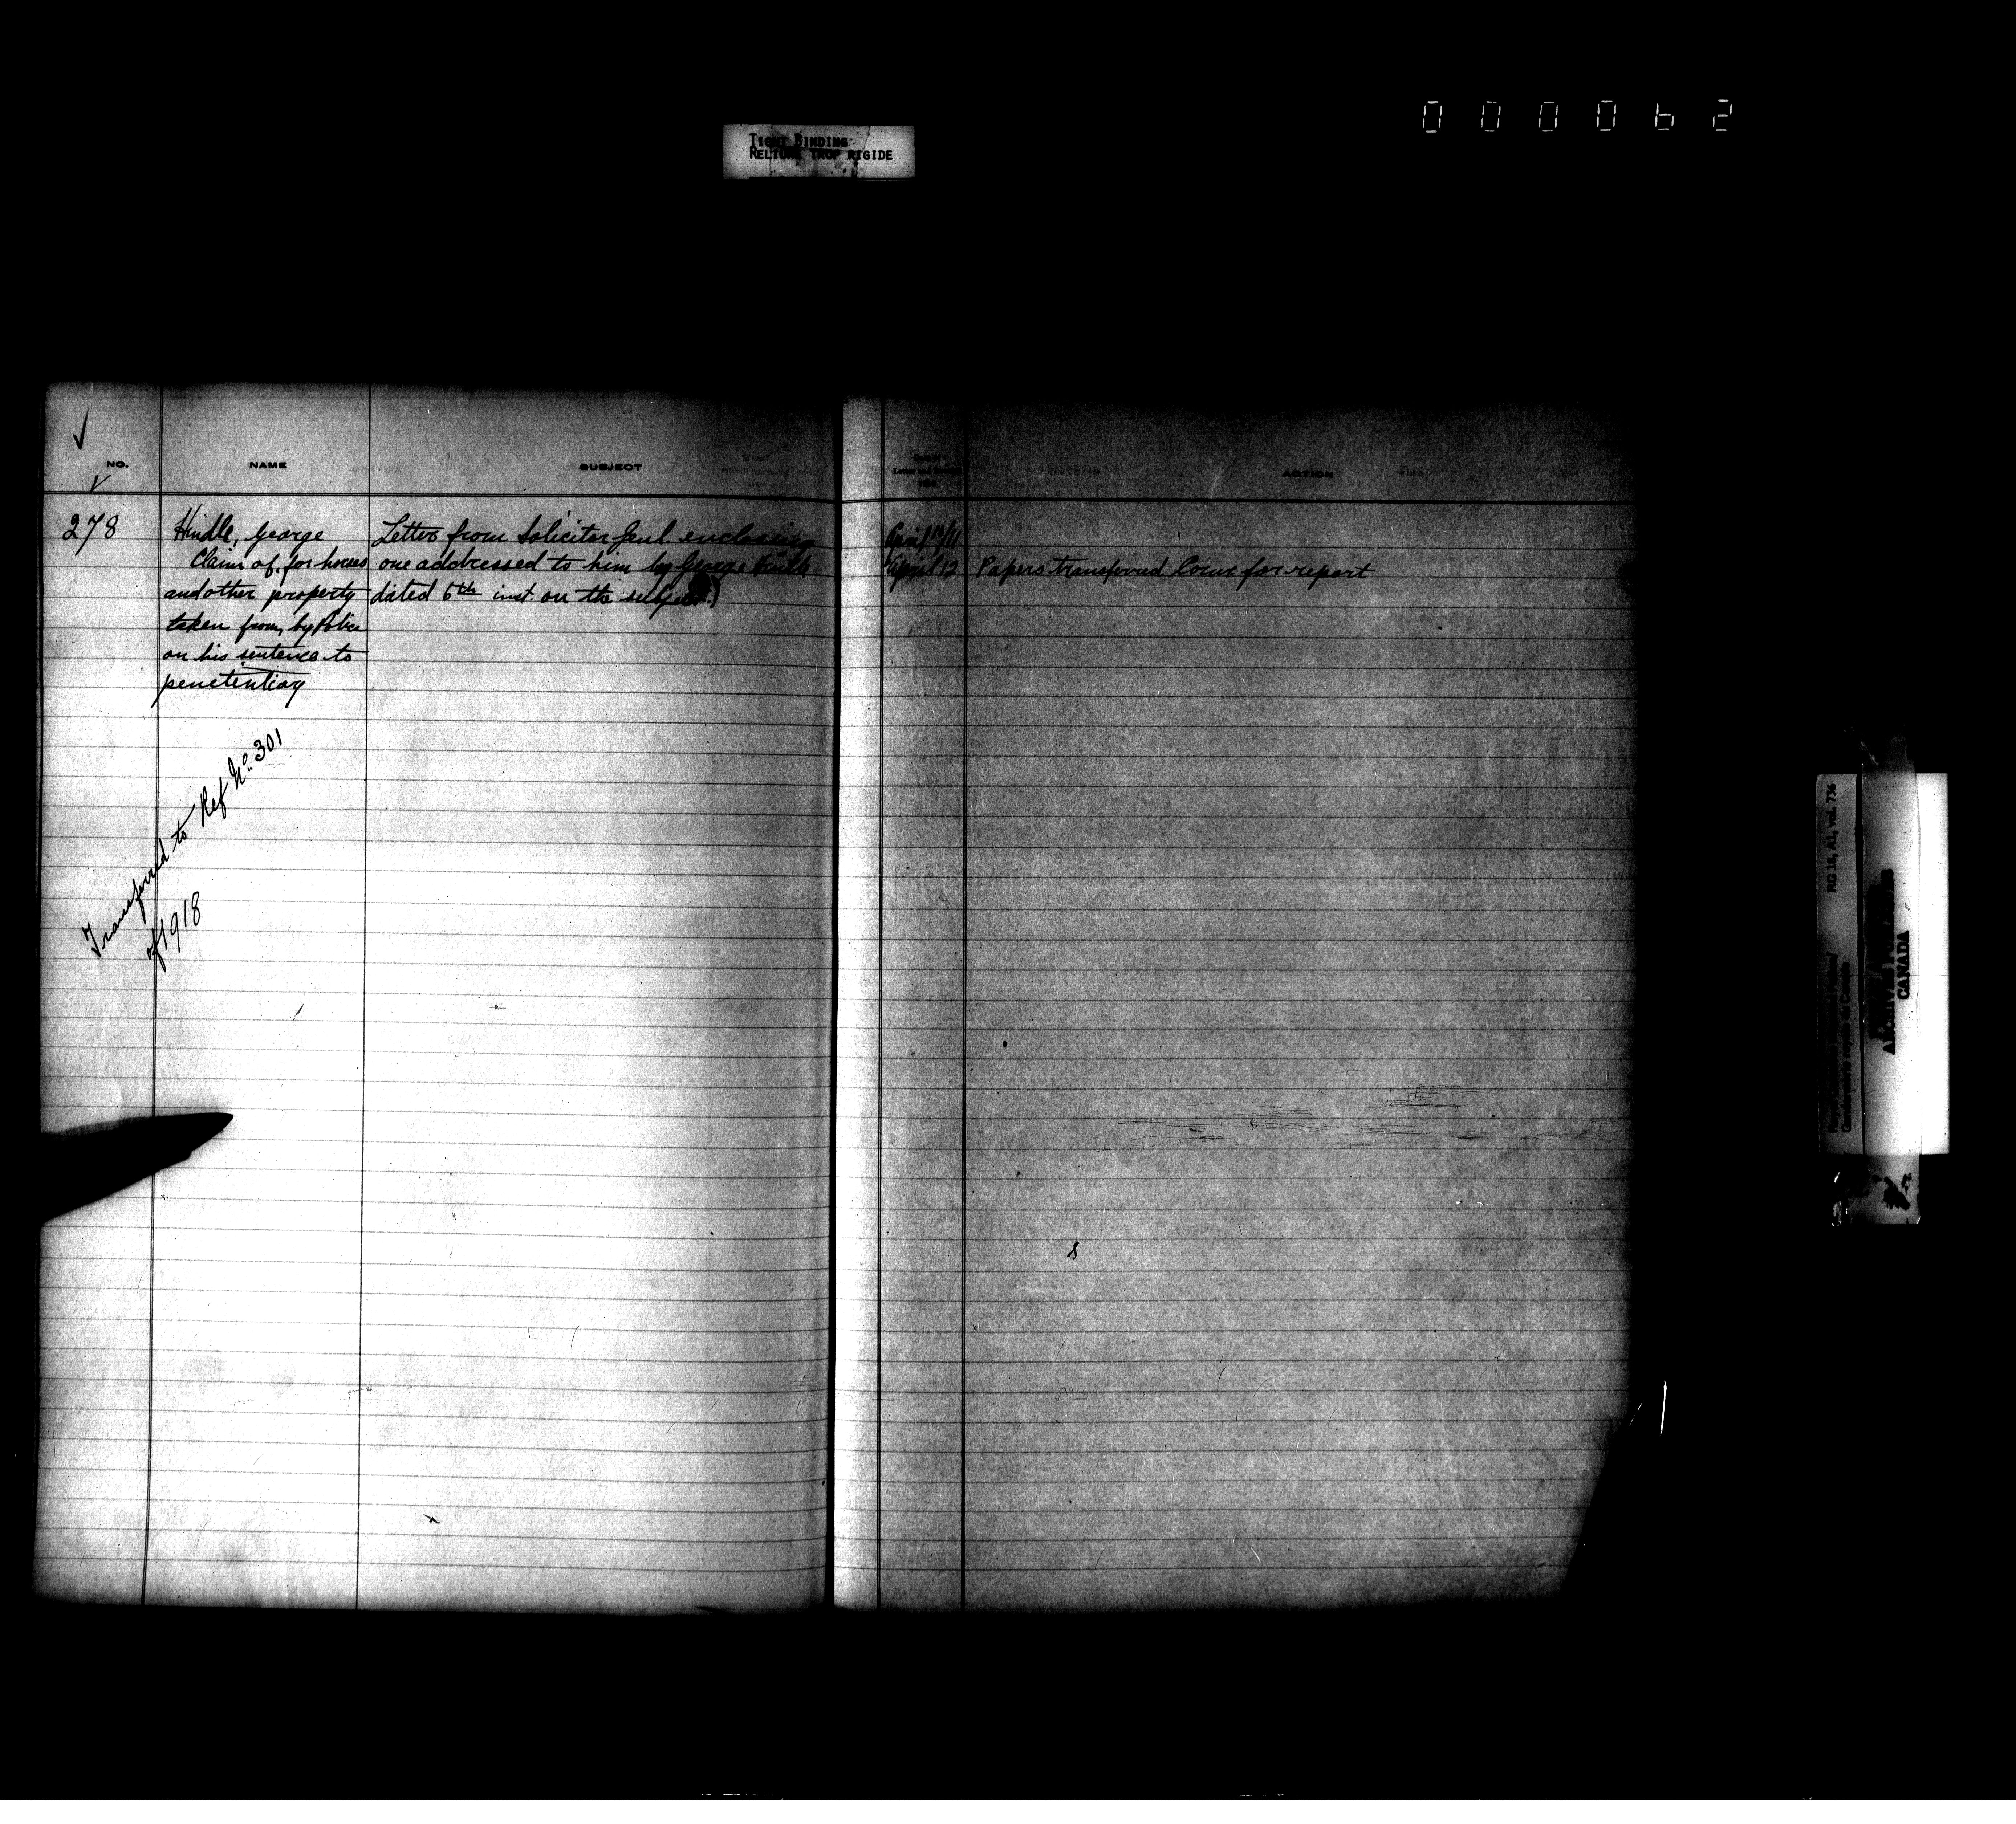 000062
TIGHT BINDING
RELIURE TROP RIGIDE
NO.
NAME
SUBJECT
ACTION
278
Hindle, George
Claim of, for horses
and other property
taken from, by Police
on his sentence to
penetentiary
Letter from Solicitor Genl. enclosing
one addressed to him by George Hindle
dated 6th inst. on the subject.)
April
April 12
Papers transferred Comr for report
Transferred to Ref No. 301
of 1918
RG 18, A1, vol. 736
CANADA